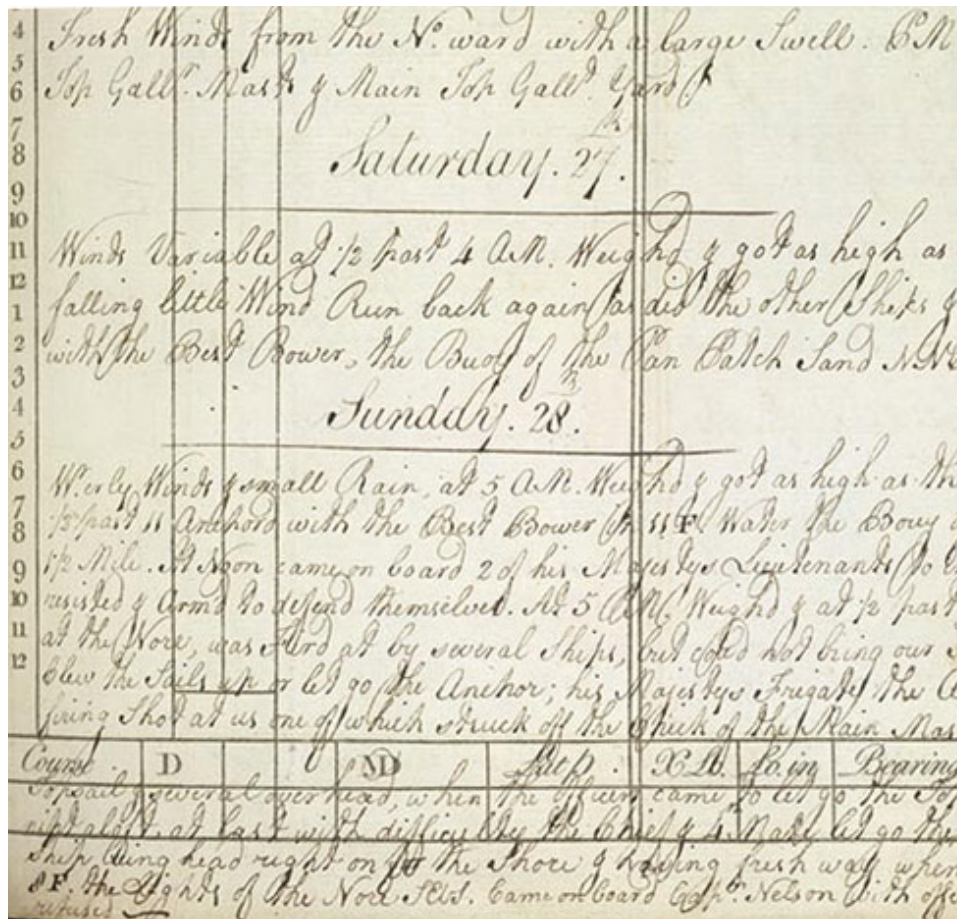 Fresh Winds from the No. ward with a large Swell. P.M
Top Gallt. Masts & Main Top Gallt. Yard
Saturday. 27th.
Winds Variable at 1/2 past 4 A.M. Weighd & got as high as
falling little Wind Run back again as did the other Ships &
with the Best Bower, the Buoy of the Pan Patch Sand N.N.E
Sunday. 28th.
W.erly Winds & small Rain, at 5 A.M. Weighd & got as high as the
1/2 past 11 Anchord with the Best Bower in 11 F. Water the Bouy
1 1/2 Mile. At Noon came on board 2 of his Majestys Lieutenants to
resisted & Armd to defend themselves. At 5 P.M. Weighd & at 1/2 past
at the Nore, was Fird at by several Ships, but coud not bring our
blew the Sails up or let go the Anchor; his Majestys Frigate the
firing Shot at us one of which struck off the Cheek of the Main Mas
Course D MD Latd. XLd. Lo. in Bearing
Topsail & several overhead, when the Officers came to let go the Top
at last with difficulty the Chief & 4 Mate let go the
Ship being head right on for the Shore & having fresh way when
8 F. the Lights of the Nore Came on board Capt. Nelson with
refused
4
5
6
7
8
9
10
11
12
1
2
3
4
5
6
7
8
9
10
11
12